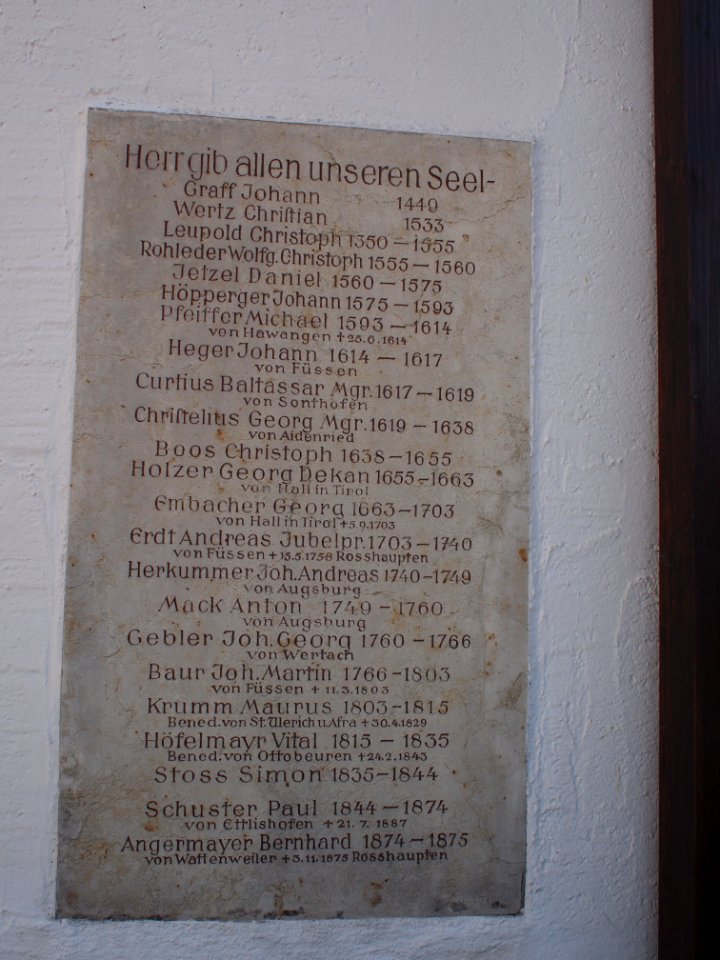 Herr gib allen unseren Seel-
Graff Johann 1449
Wertz Christian 1533
Leupold Christoph 1350 – 1555
Rohleder Wolfg. Christoph 1555 – 1560
Jetzel Daniel 1560 – 1575
Höpperger Johann 1575 – 1593
Pfeiffer Michael 1593 – 1614
von Hawangen + 25.6.1614
Heger Johann 1614 – 1617
von Füssen
Curtius Baltassar Mgr. 1617 – 1619
von Sonthofen
Christelius Georg Mgr. 1619 – 1638
von Aidenried
Boos Christoph 1638 – 1655
Holzer Georg Dekan 1655 – 1663
von Hall in Tirol
Embacher Georg 1663 – 1703
von Hall in Tirol + 5.9.1703
Erdt Andreas Jubelpr. 1703 – 1740
von Füssen + 13.5.1758 Rosshaupten
Herkummer Joh. Andreas 1740 – 1749
von Augsburg
Mack Anton 1749 – 1760
von Augsburg
Gebler Joh. Georg 1760 – 1766
von Wertach
Baur Joh. Martin 1766 – 1803
von Füssen + 11.3.1803
Krumm Maurus 1803 – 1815
Bened. von St. Ulerich u. Afra + 30.4.1829
Höfelmayr Vital 1815 – 1835
Bened. von Ottobeuren + 24.2.1843
Stoss Simon 1835 – 1844
Schuster Paul 1844 – 1874
von Ettlishofen + 21.7.1887
Angermayer Bernhard 1874 – 1875
von Wattenweiler + 3.11.1875 Rosshaupten